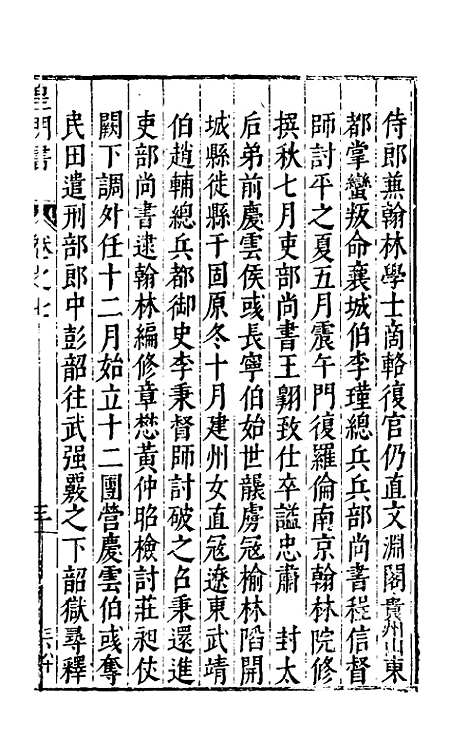 侍郎蕪翰林學士商輅復官仍直文淵閣貴州山東
都掌蠻叛命襄城伯李瑾總兵兵部尚書程信督
師討平之夏五月震午門復羅倫南京翰林院修
撰秋七月吏部尚書王翺致仕卒謚忠肅　封太
后弟前慶雲侯彧長寧伯始世襲虜冦榆林䧟開
城縣徙縣于固原冬十月建州女直冦遼東武靖
伯趙輔總兵都御史李秉督師討破之召秉還進
吏部尚書逮翰林編修章懋黃仲昭檢討莊昶仗
闕下調外任十二月始立十二團營慶雲伯彧奪
民田遣刑部郎中彭韶往武强覈之下韶獄尋釋
皇明書　卷之七　三